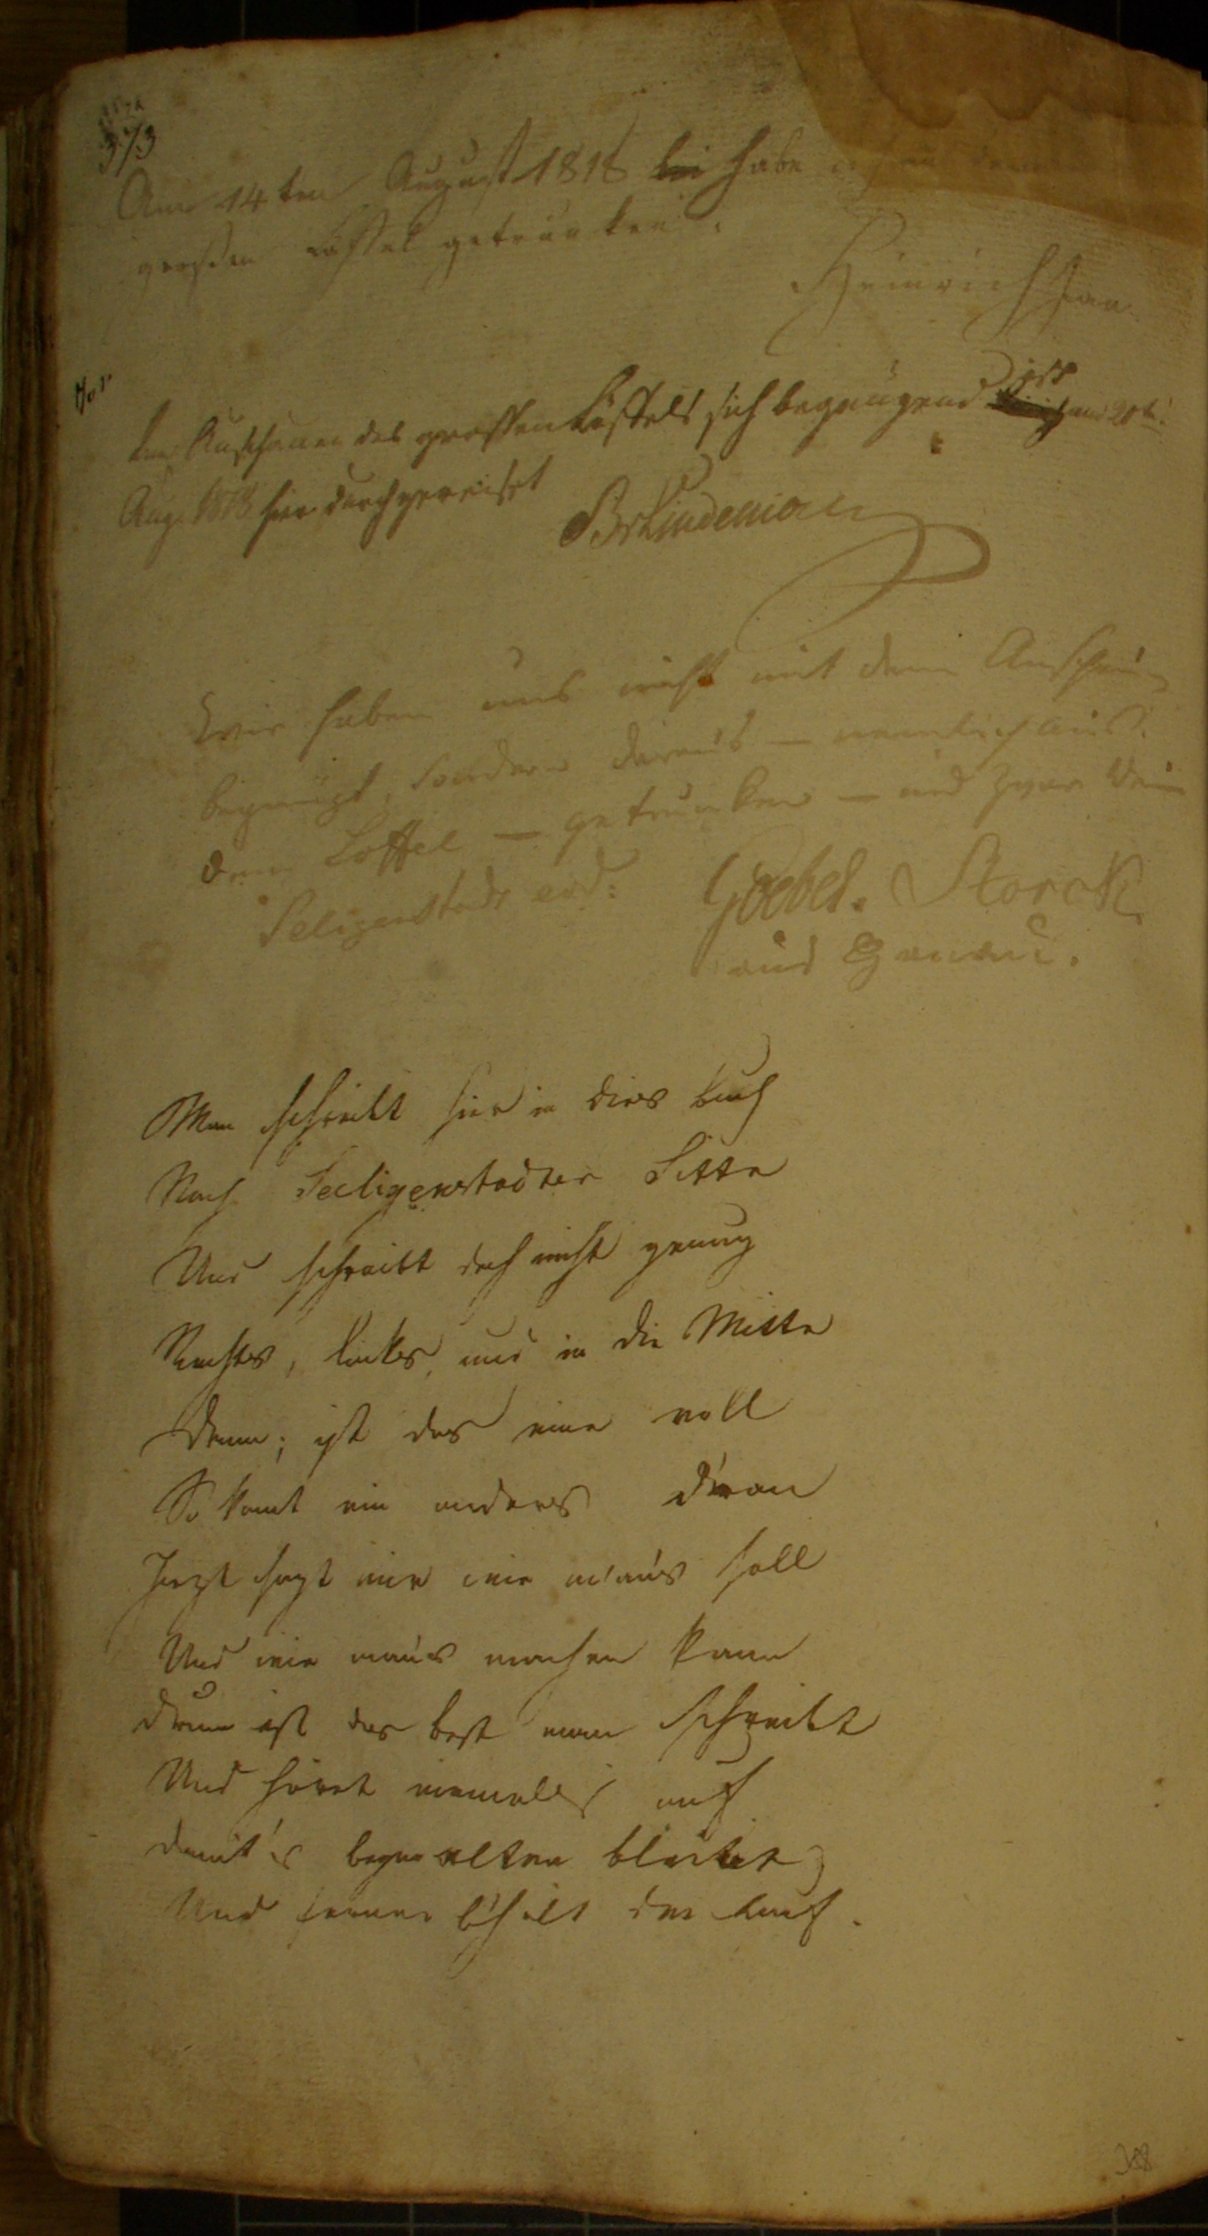 373
Am 14ten August 1818 bin habe ich aus dem
großen Löffel getrunken.
Heinrich
Vor
dem Anschauen des grossen Löffels sich begnügend ist am 20t.
Aug. 1818 hier durchgereiset
Br Lindeman
Wir haben uns nicht mit dem Anschaun
begnügt, sondern daraus – nemlich aus
dem Löffel – getrunken – und zwar
Seligenstadt Goebel. Storck
aus Hanau.
Man schreibt hier in dies buch
Nach Seeligenstadter Sitte
Und schreibt doch nicht genug
Rechts, links, und in die Mitte
Denn; ist das eine voll
So komt ein anders dran
Jezt sagt mir wie m'aus soll
Und wie man's machen kann
Drum ist das best man schreibt
Und höret niemalls auf
damit's beym alten bleibt
Und ferner b'hält den Lauf.